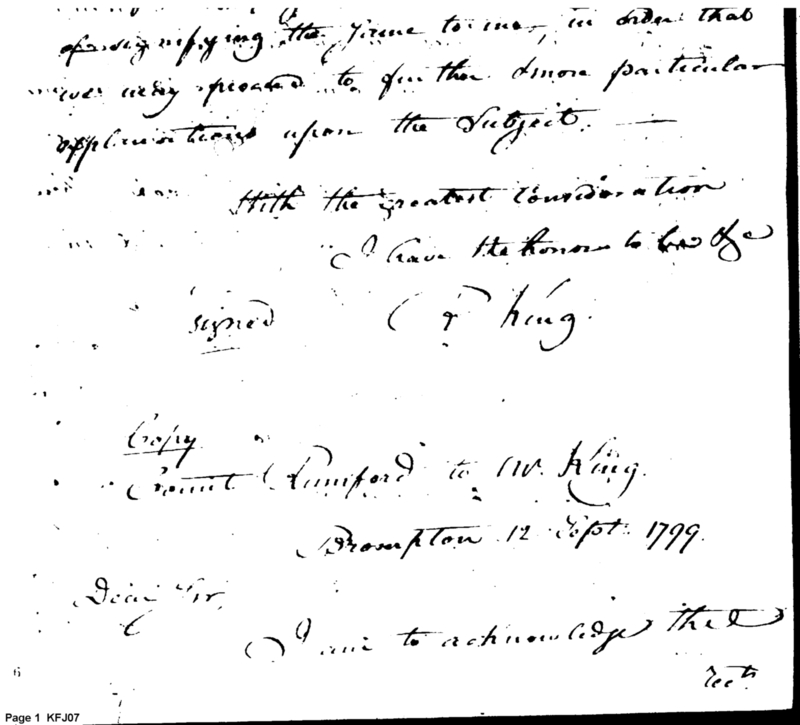 of signifying the same to me, in order that
we may proceed to further & more particular
explanations upon the Subject. —
With the greatest Consideration
I have the honour to be &c
signed R King.
Copy
Count Rumford to Mr. King.
Brompton 12 Sept. 1799.
Dear Sir,
I am to acknowledge the
rect
6
Page 1 KFJ07